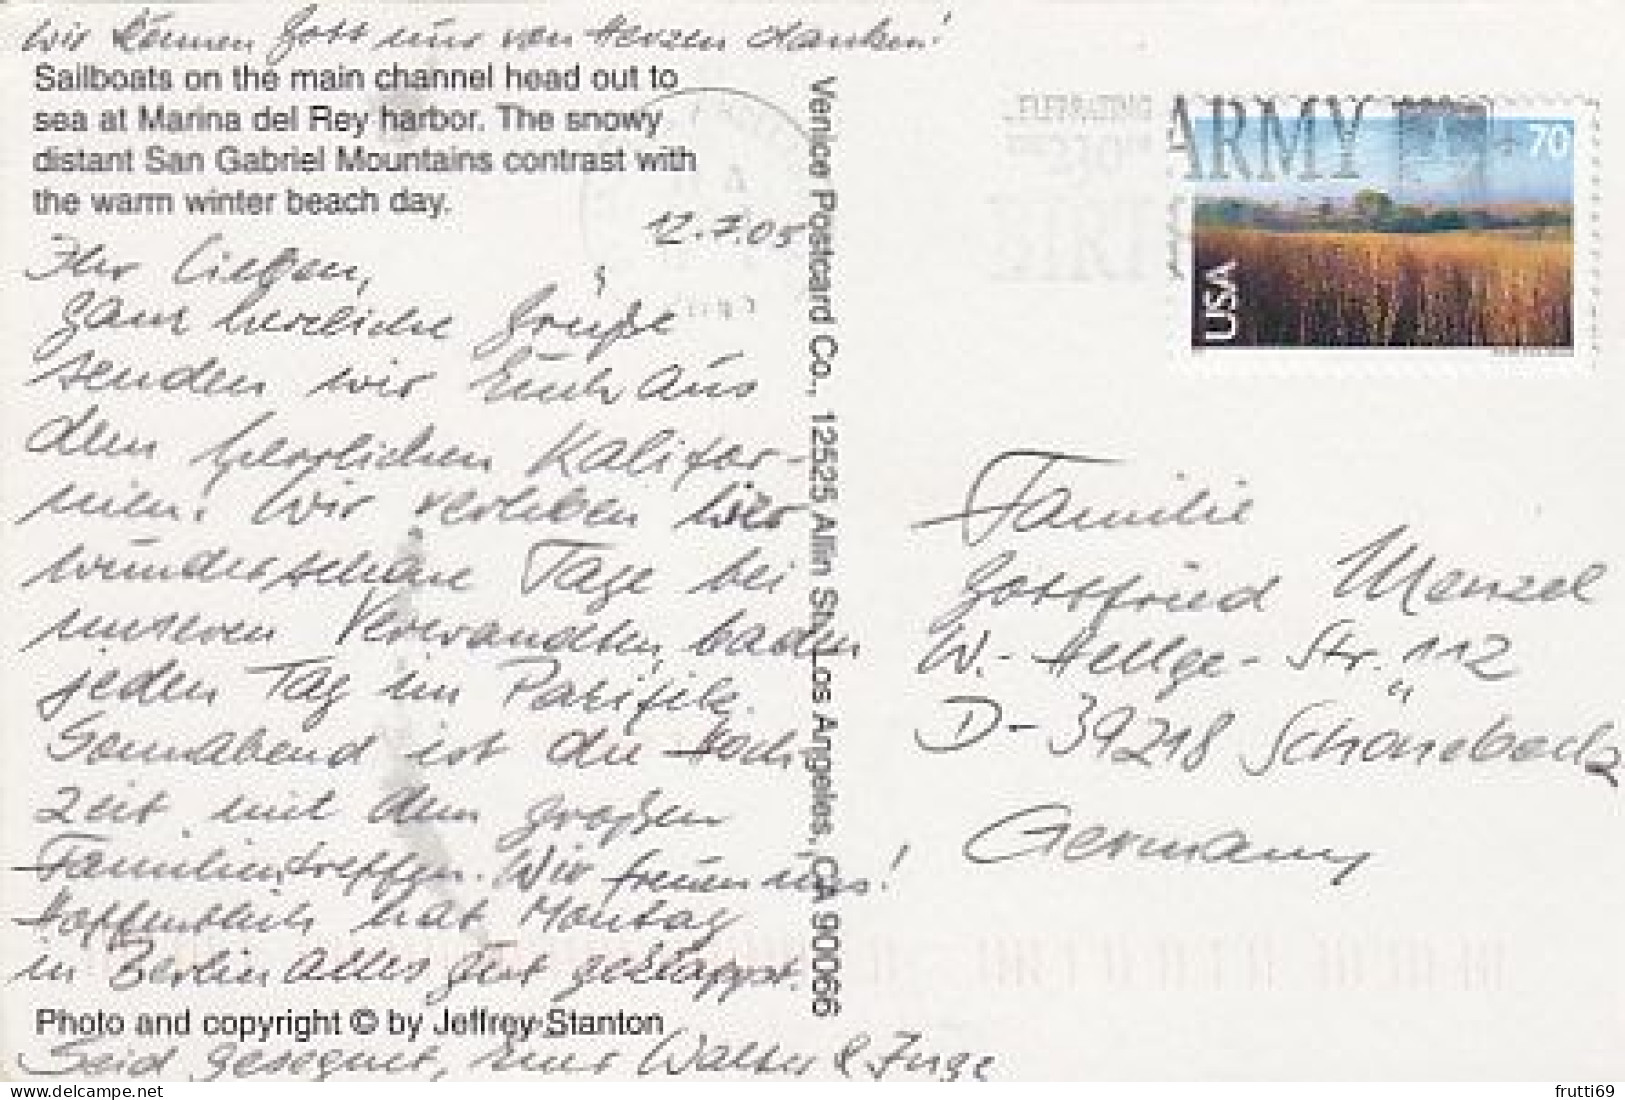 Wir können Gott nur von Herzen danken!
Sailboats on the main channel head out to
sea at Marina del Rey harbor. The snowy
distant San Gabriel Mountains contrast with
the warm winter beach day.
12.7.05
Ihr Lieben,
ganz herzliche Grüße
senden wir Euch aus
dem herrlichen Kalifor-
nien. Wir verleben hier
wunderschöne Tage bei
unseren Verwandten, baden
jeden Tag im Pazifik.
Sonnabend ist die Hoch-
zeit mit dem großen
Familientreffen. Wir freuen uns!
Hoffentlich hat Montag
in Berlin alles gut geklappt.
Photo and copyright © by Jeffrey Stanton
Seid gesegnet, Eure Walter & Inge
Venice Postcard Co., 12525 Allin St., Los Angeles, CA 90066
ARMY
70
USA
Familie
Gottfried Menzel
W.-Hellge-Str. 112
D-39218 Schönebeck
Germany
frutti69